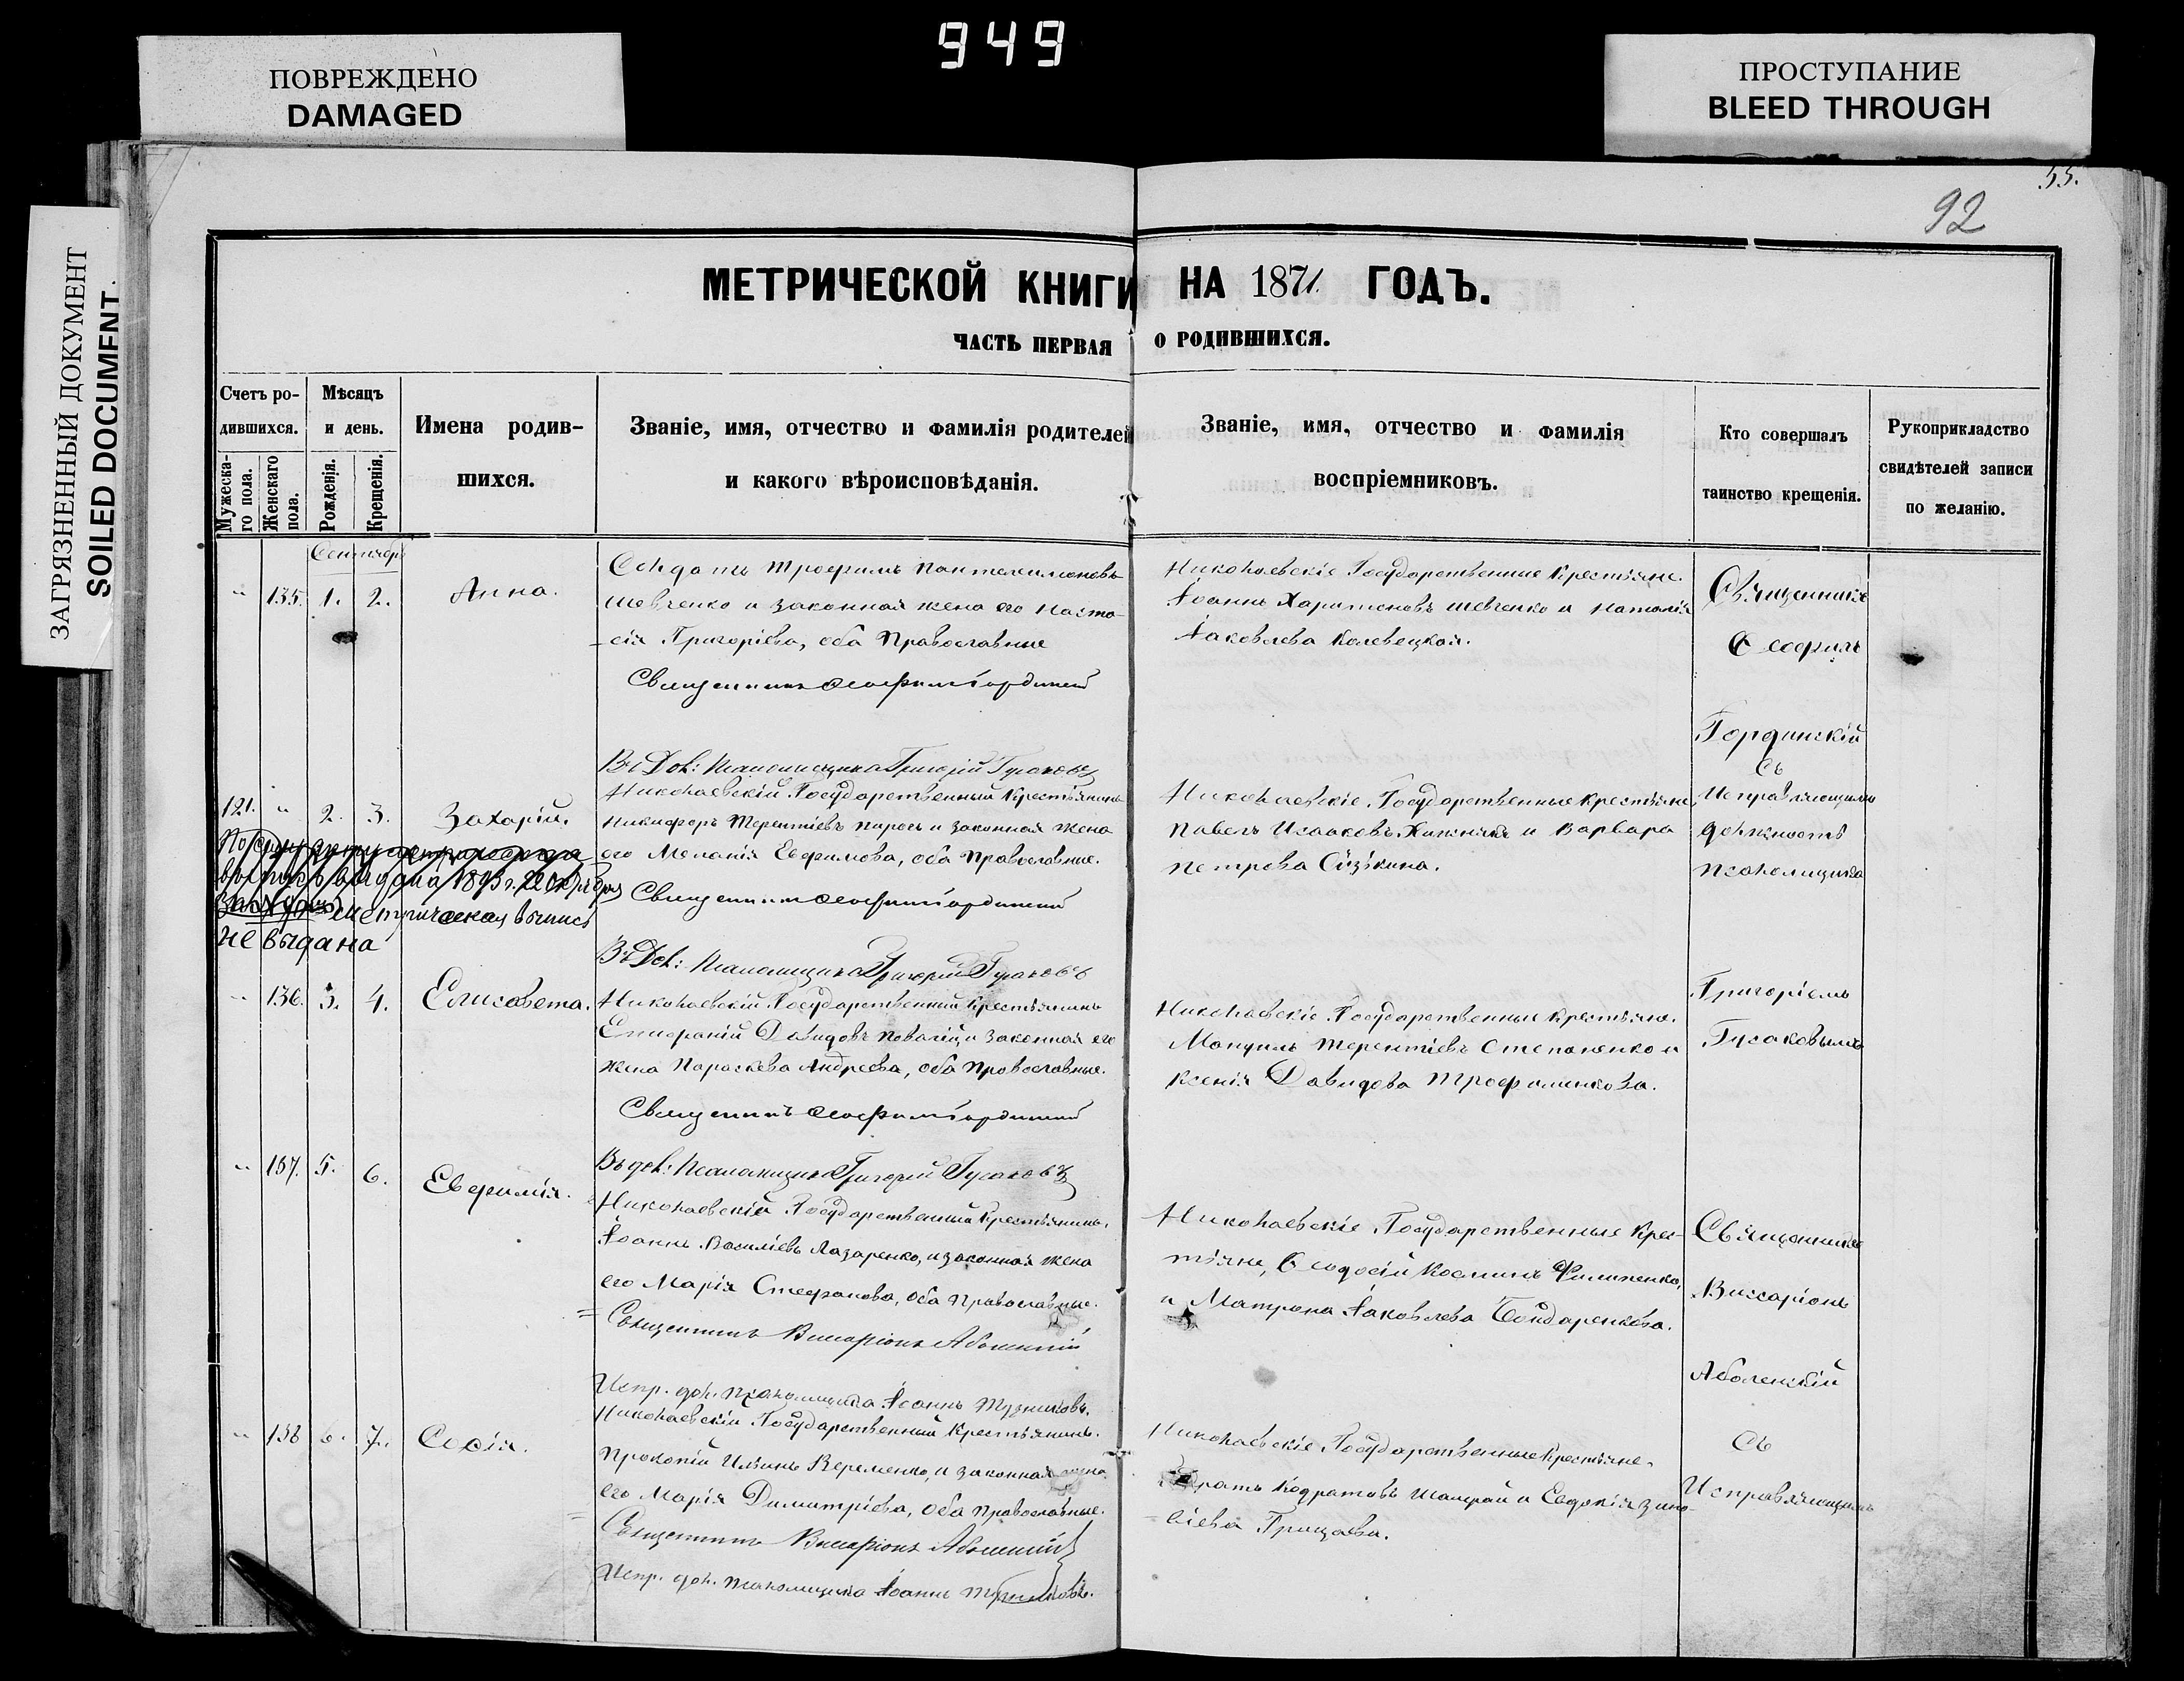 949
ПОВРЕЖДЕНО
DAMAGED
ПРОСТУПАНИЕ
BLEED THROUGH
ЗАГРЯЗНЕННЫЙ ДОКУМЕНТ
SOILED DOCUMENT.
55.
92
МЕТРИЧЕСКОЙ КНИГИ НА 1871 ГОДЪ.
ЧАСТЬ ПЕРВАЯ О РОДИВШИХСЯ.
Счетъ ро-
дившихся.
Мужеска-
го пола.
Женскаго
пола.
Мѣсяцъ
и день.
Рожденія.
Крещенія.
Имена родив-
шихся.
Званіе, имя, отчество и фамилія родителей
и какого вѣроисповѣданія.
Званіе, имя, отчество и фамилія
воспріемниковъ.
Кто совершалъ
таинство крещенія.
Рукоприкладство
свидѣтелей записи
по желанію.
Сентябрь
" 135. 1. 2. Анна.
Солдатъ Трофимъ Пантелеимоновъ
Шевченко и законная жена его Наста-
сія Григоріева, оба Православные
Священникъ Ѳеофилъ Гординскій
Въ Дол: Псаломщика Григорій Гусаковъ
Николаевскіе Государственные Крестьяне.
Іоаннъ Харитоновъ Шевченко и Наталія
Іаковлева Колевецкая.
Священникъ
Ѳеофилъ
Гординскій
съ
Исправляющимъ
должность
Псаломщика
Григоріемъ
Гусаковымъ
121. " 2. 3. Захарій.
Николаевскій Государственный Крестьянинъ
Никифоръ Терентіевъ Пирогъ и законная жена
его Меланія Евфимова, оба Православные.
Священникъ Ѳеофилъ Гординскій
Въ Дол: Псаломщика Григорій Гусаковъ
Николаевскіе Государственные крестьяне,
Павелъ Исааковъ Книжникъ и Варвара
Петрова Сизькина.
метрическая выпись
не выдана
" 136. 3. 4. Елисавета.
Николаевскій Государственный Крестьянинъ
Епифаній Давидовъ Поваляй и законная его
жена Параскева Андреева, оба Православные.
Священникъ Ѳеофилъ Гординскій
Въ дол: Псаломщика Григорій Гусаковъ
Николаевскіе Государственные Крестьяне.
Мануилъ Терентіевъ Степаненко и
Ксенія Давидова Трофименкова.
" 137. 5. 6. Евфимія.
Николаевскій Государственный Крестьянинъ,
Іоаннъ Василіевъ Лазаренко, и законная жена
его Марія Стефанова, оба Православные.
Священникъ Виссаріонъ Аболенскій
Испр. дол. Псаломщика Іоаннъ
Николаевскіе Государственные Крес-
тьяне, Ѳеодосій Косминъ Филипенко,
и Матрона Іаковлева Бондаренкова.
Священникъ
Виссаріонъ
Аболенскій
съ
Исправляющимъ
" 138 6. 7. Софія.
Николаевскій Государственный Крестьянинъ.
Прокопій Ильинъ Веременко, и законная жена
его Марія Димитріева, оба Православные.
Священникъ Виссаріонъ Аболенскій
Испр. дол. Псаломщика Іоаннъ
Николаевскіе Государственные Крестьяне.
Кодратъ Кодратовъ и Евдокія Зино-
віева Грицаева.